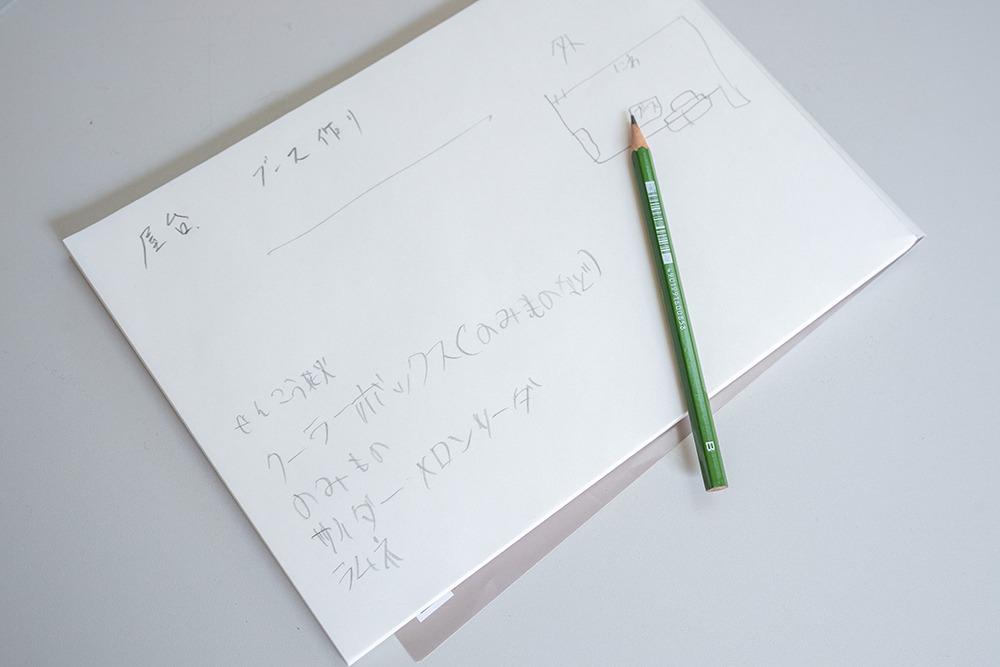 屋台
ブース作り
外
にわ
せんこう花火
クーラーボックス(のみものなど)
のみもの
サイダー メロンソーダ
ラムネ
B